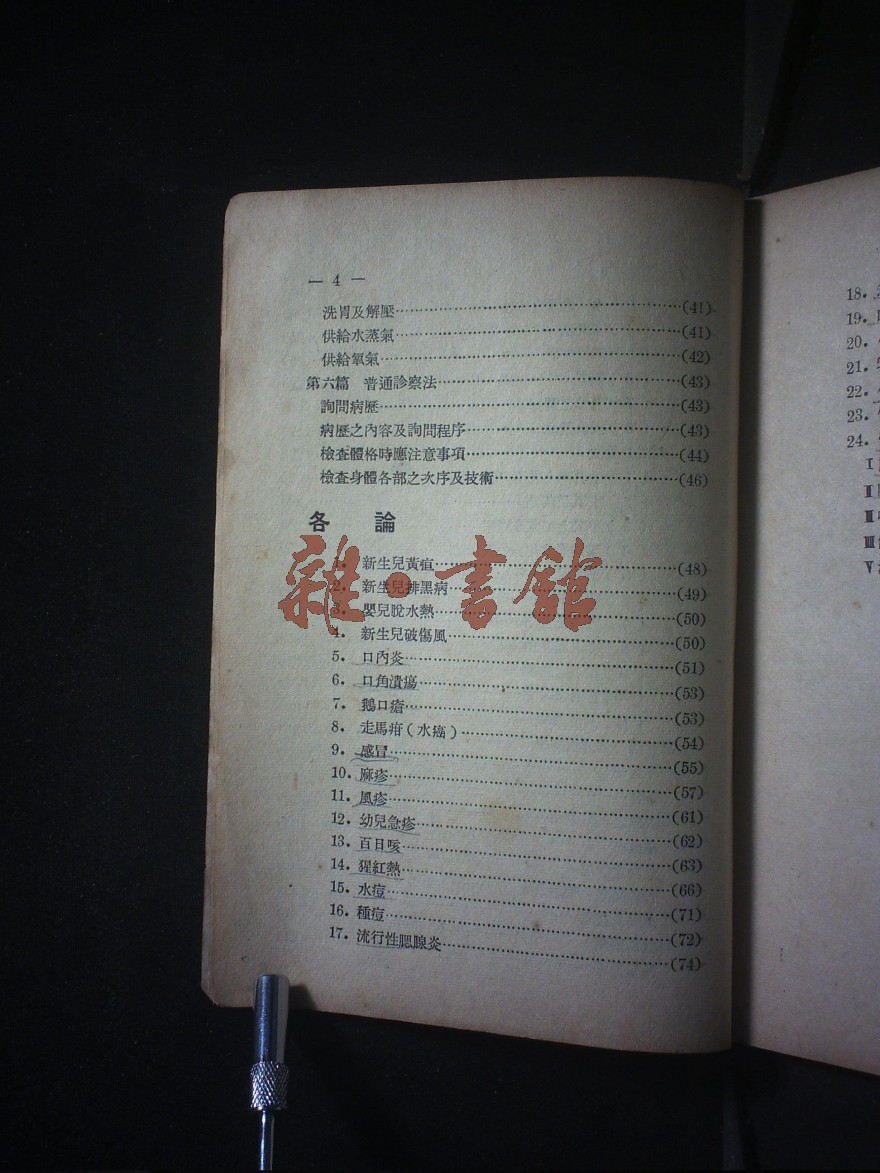 — 4 —
洗胃及解壓……(41)
供給水蒸氣……(41)
供給氧氣……(42)
第六篇 普通診察法……(43)
詢問病歷……(43)
病歷之內容及詢問程序……(43)
檢查體格時應注意事項……(44)
檢查身體各部之次序及技術……(46)
各 論
1. 新生兒黃疸……(48)
2. 新生兒排黑病……(49)
3. 嬰兒脫水熱……(50)
4. 新生兒破傷風……(50)
5. 口內炎……(51)
6. 口角潰瘍……(53)
7. 鵝口瘡……(53)
8. 走馬疳(水癌)……(54)
9. 感冒……(55)
10. 麻疹……(57)
11. 風疹……(61)
12. 幼兒急疹……(62)
13. 百日咳……(63)
14. 猩紅熱……(66)
15. 水痘……(71)
16. 種痘……(72)
17. 流行性腮腺炎……(74)
雜·書館
18.
19.
20.
21.
22.
23.
24.
Ⅰ
Ⅱ
Ⅲ
Ⅲ
Ⅴ